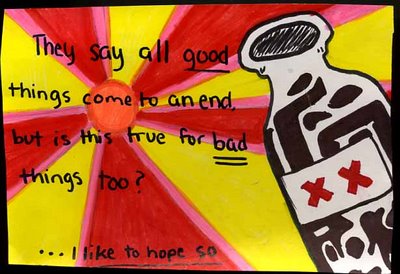 They say all good
things come to an end,
but is this true for bad
things too?
XX
...I like to hope so